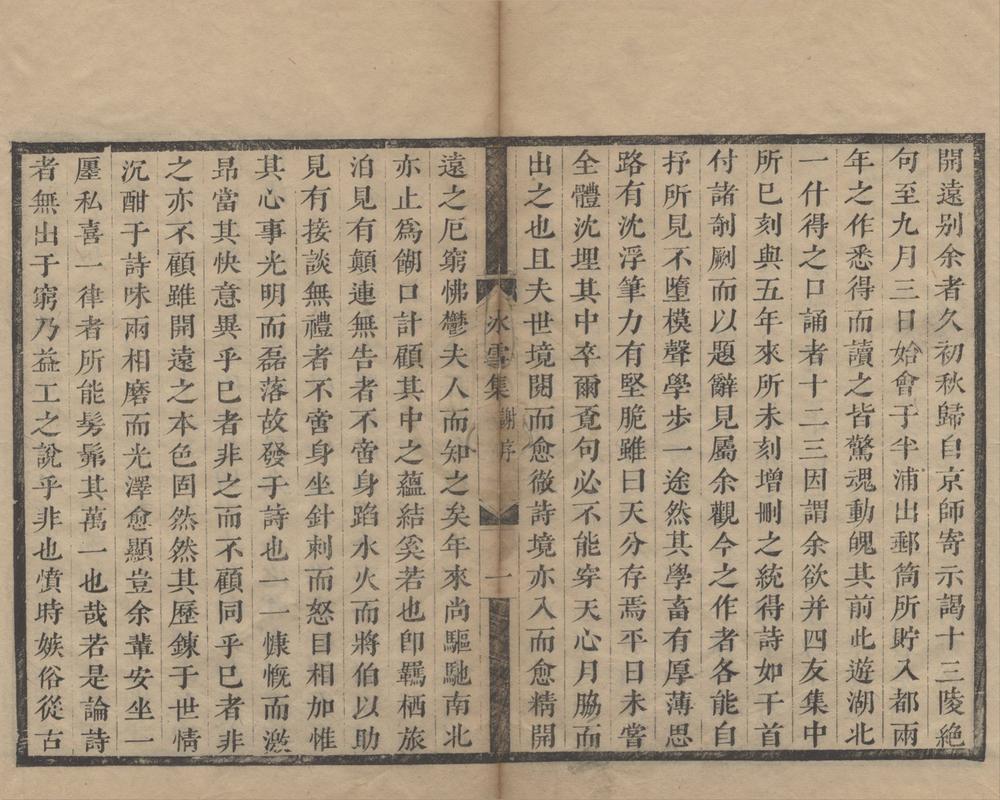 開遠别余者久初秋歸自京師寄示謁十三陵絶
句至九月三日始會于半浦出郵筒所貯入都兩
年之作悉得而讀之皆驚魂動魄其前此遊湖北
一什得之口誦者十二三因謂余欲并四友集中
所巳刻與五年來所未刻增删之統得詩如干首
付諸剞劂而以題辭見屬余觀今之作者各能自
抒所見不墮模聲學步一途然其學畜有厚薄思
路有沈浮筆力有堅脆雖曰天分存焉平日未嘗
全體沈埋其中卒爾覔句必不能穿天心月脇而
出之也且夫世境閱而愈徹詩境亦入而愈精開
冰雪集
謝序
一
遠之厄窮怫鬱夫人而知之矣年來尚驅馳南北
亦止爲餬口計顧其中之蘊結奚若也卽羈栖旅
泊見有顛連無告者不啻身蹈水火而將伯以助
見有接談無禮者不啻身坐針刺而怒目相加惟
其心事光明而磊落故發于詩也一一慷慨而激
昻當其快意異乎巳者非之而不顧同乎巳者非
之亦不顧雖開遠之本色固然然其歷錬于世情
沉酣于詩味兩相磨而光澤愈顯豈余輩安坐一
㕓私喜一律者所能髣髴其萬一也哉若是論詩
者無出于窮乃益工之說乎非也憤時嫉俗從古